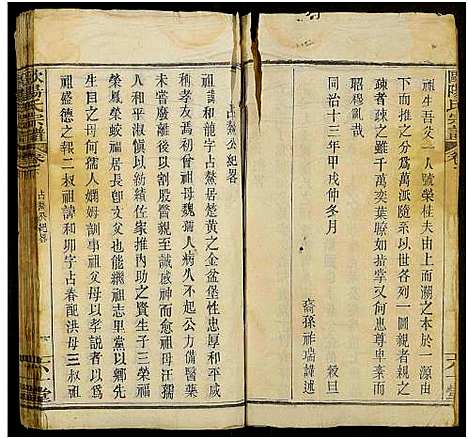 歐陽氏宗譜
祖生吾父一人號榮桂夫由上而溯之本於一源由
下而推之分為萬派隨系以世各列一圖親者親之
疎者疎之雖千萬奕葉瞭於如指掌亦何愚尊卑紊而
昭穆亂哉
同治十三年甲戌仲冬月 穀旦
裔孫祚瑞謹述
占鰲公紀畧
祖諱和龍字占鰲居楚黃之金盆堡性忠厚處
利孝友為初曾祖母魏孺人病久不愈公力
求醫服藥股割甚至誠感神而愈祖母汪孺
人和平淑慎紡績佐家推內助之賢生子三榮福
榮鳳蛟福居長卽文父也能繼祖志里黨以鄉先
生目之母何孺人嫺姆訓事祖父母以孝說者以為
祖盛德之報二叔祖諱和卯字占春配洪母三叔祖
歐陽氏宗譜 卷 占鰲公紀畧
六一堂